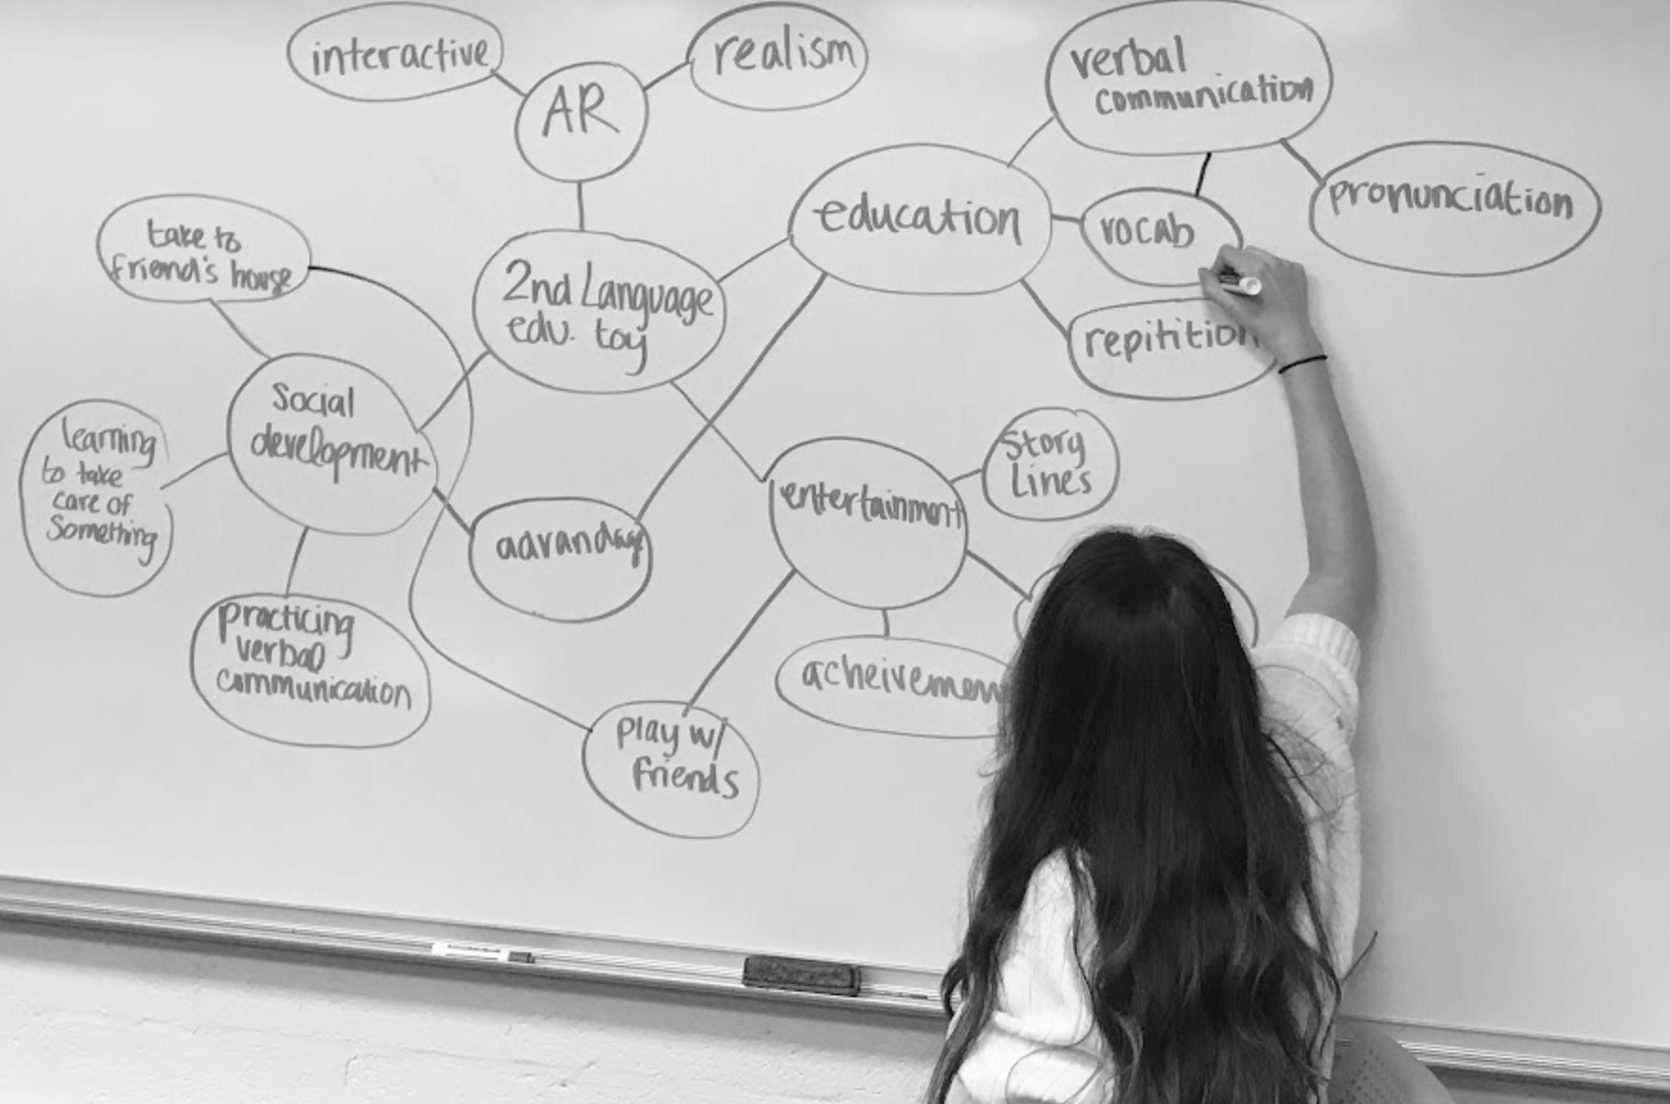 interactive
realism
AR
verbal
communication
pronunciation
education
vocab
repitition
take to
friend's house
2nd Language
edu. toy
social
development
learning
to take
care of
Something
entertainment
Story
Lines
practicing
verbal
communication
play w/
friends